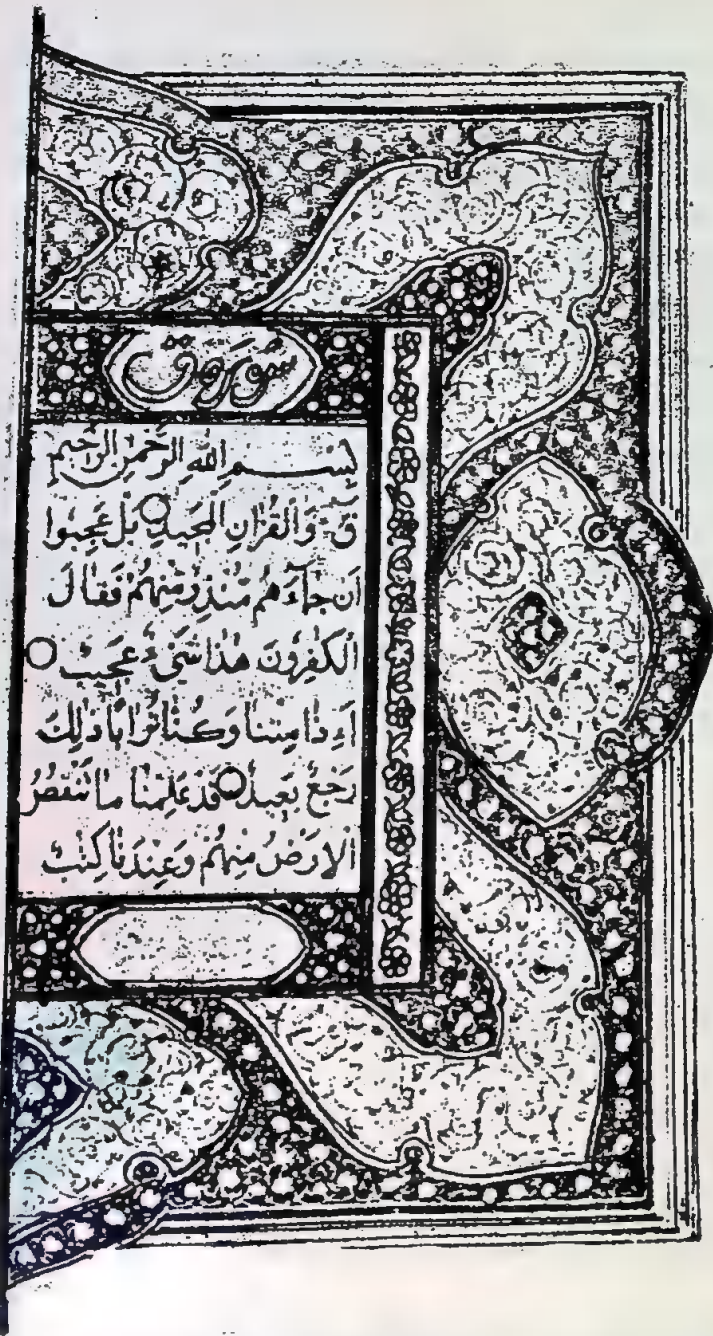 سُورَةُ ق
بِسْمِ اللهِ الرَّحْمٰنِ الرَّحِيْمِ
قٓ وَالْقُرْاٰنِ الْمَجِيْدِ بَلْ عَجِبُوْا
اَنْ جَآءَهُمْ مُنْذِرٌ مِنْهُمْ فَقَالَ
الْكٰفِرُوْنَ هٰذَا شَیْءٌ عَجِيْبٌ
ءَاِذَا مِتْنَا وَكُنَّا تُرَابًا ذٰلِكَ
رَجْعٌ بَعِيْدٌ قَدْ عَلِمْنَا مَا تَنْقُصُ
الْاَرْضُ مِنْهُمْ وَعِنْدَنَا كِتٰبٌ